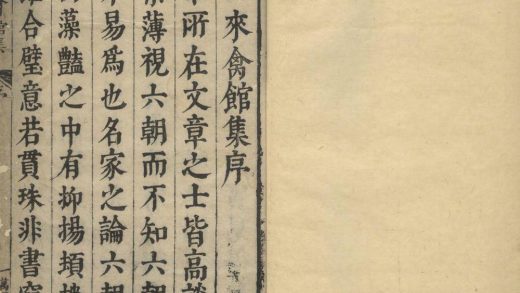 來禽館集序
所在文章之士皆高談
薄視六朝而不知六朝
易為也名家之論六朝
藻豔之中有抑揚頓挫
合璧意若貫珠非書窮